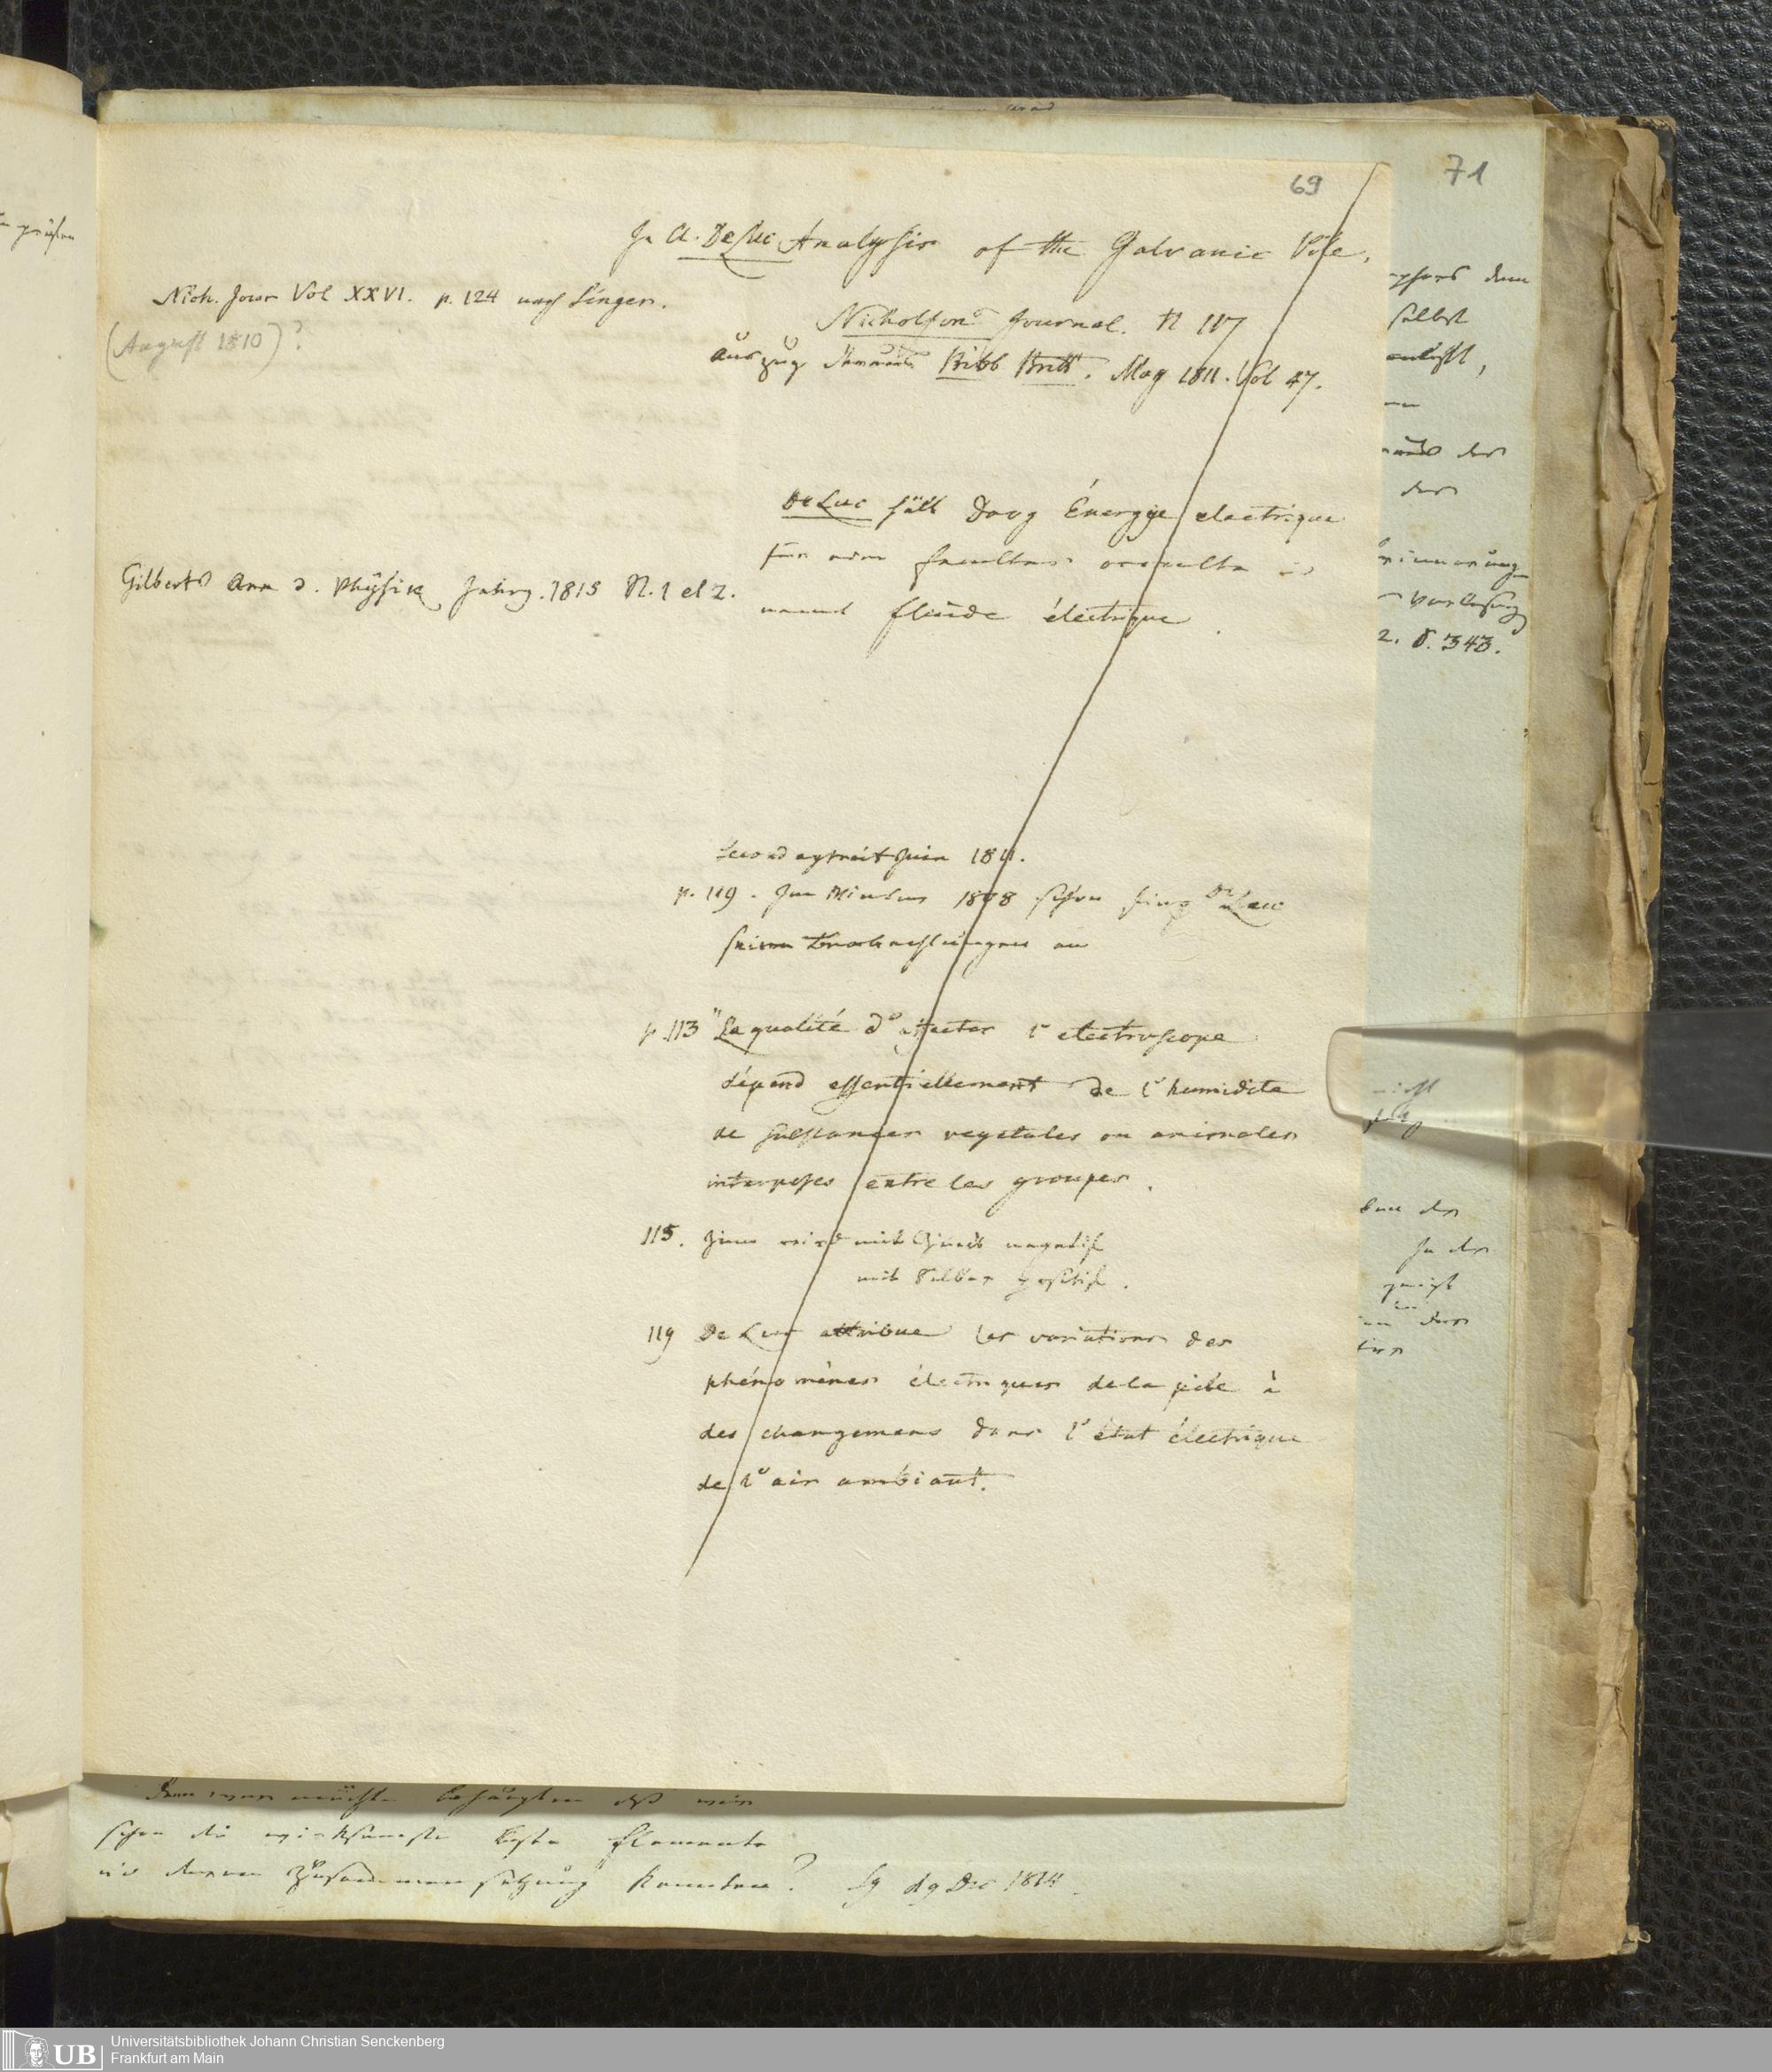 69
71
J. A. DeLuc Analysis of the Galvanic Pile,
Nich. Jour Vol XXVI. p. 124 nach Singer.
(August 1810)?
Nicholsons Journal. N 117
Auszug Bibb Britt. May 1811. Vol 47.
DeLuc hält Davy Énergie electrique
für eine facultas occulta
nennt fluide électrique.
Gilberts Ann d. Physik Jahrg. 1815 N. 1 et 2.
Second extrait Juin 1811.
p. 119. Im 1808 schon fing DeLuc
seine Beobachtungen an
p. 113 "La qualité d'affecter l'electroscope
dépend essentiellement de l'humidite
de substances vegetales ou animales
interposes entre les groupes.
115. Zinn wird mit Zink negatif
mit Silber positif.
119 De Luc attribue les variations des
phénomènes électriques de la pile à
des changemens dans l'état électrique
de l'air ambiant.
selbst
der
der
2. S. 343.
schon die wirksamste Elemente
Zusammensetzung kannten? Sg d 9 Dec 1814.
UB
Universitätsbibliothek Johann Christian Senckenberg
Frankfurt am Main